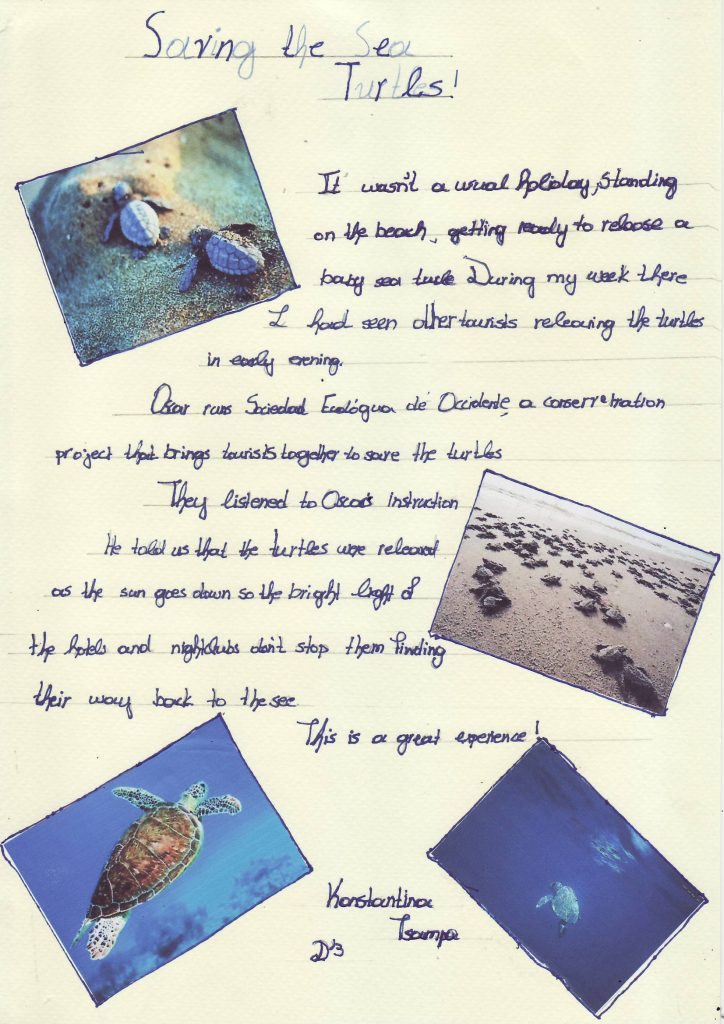 Saving the Sea
Turtles!
It wasn't a usual holiday, standing
on the beach, getting ready to release a
baby sea turtle During my week there
I had seen other tourists releasing the turtles
in early evening.
Oscar runs Sociedad Ecológica de Occidente, a conservation
project that brings tourists together to save the turtles
They listened to Oscar's instruction
He told us that the turtles were released
as the sun goes down so the bright light of
the hotels and nightclubs don't stop them finding
their way back to the see
This is a great experience!
Konstantina
Tsampa
D'3